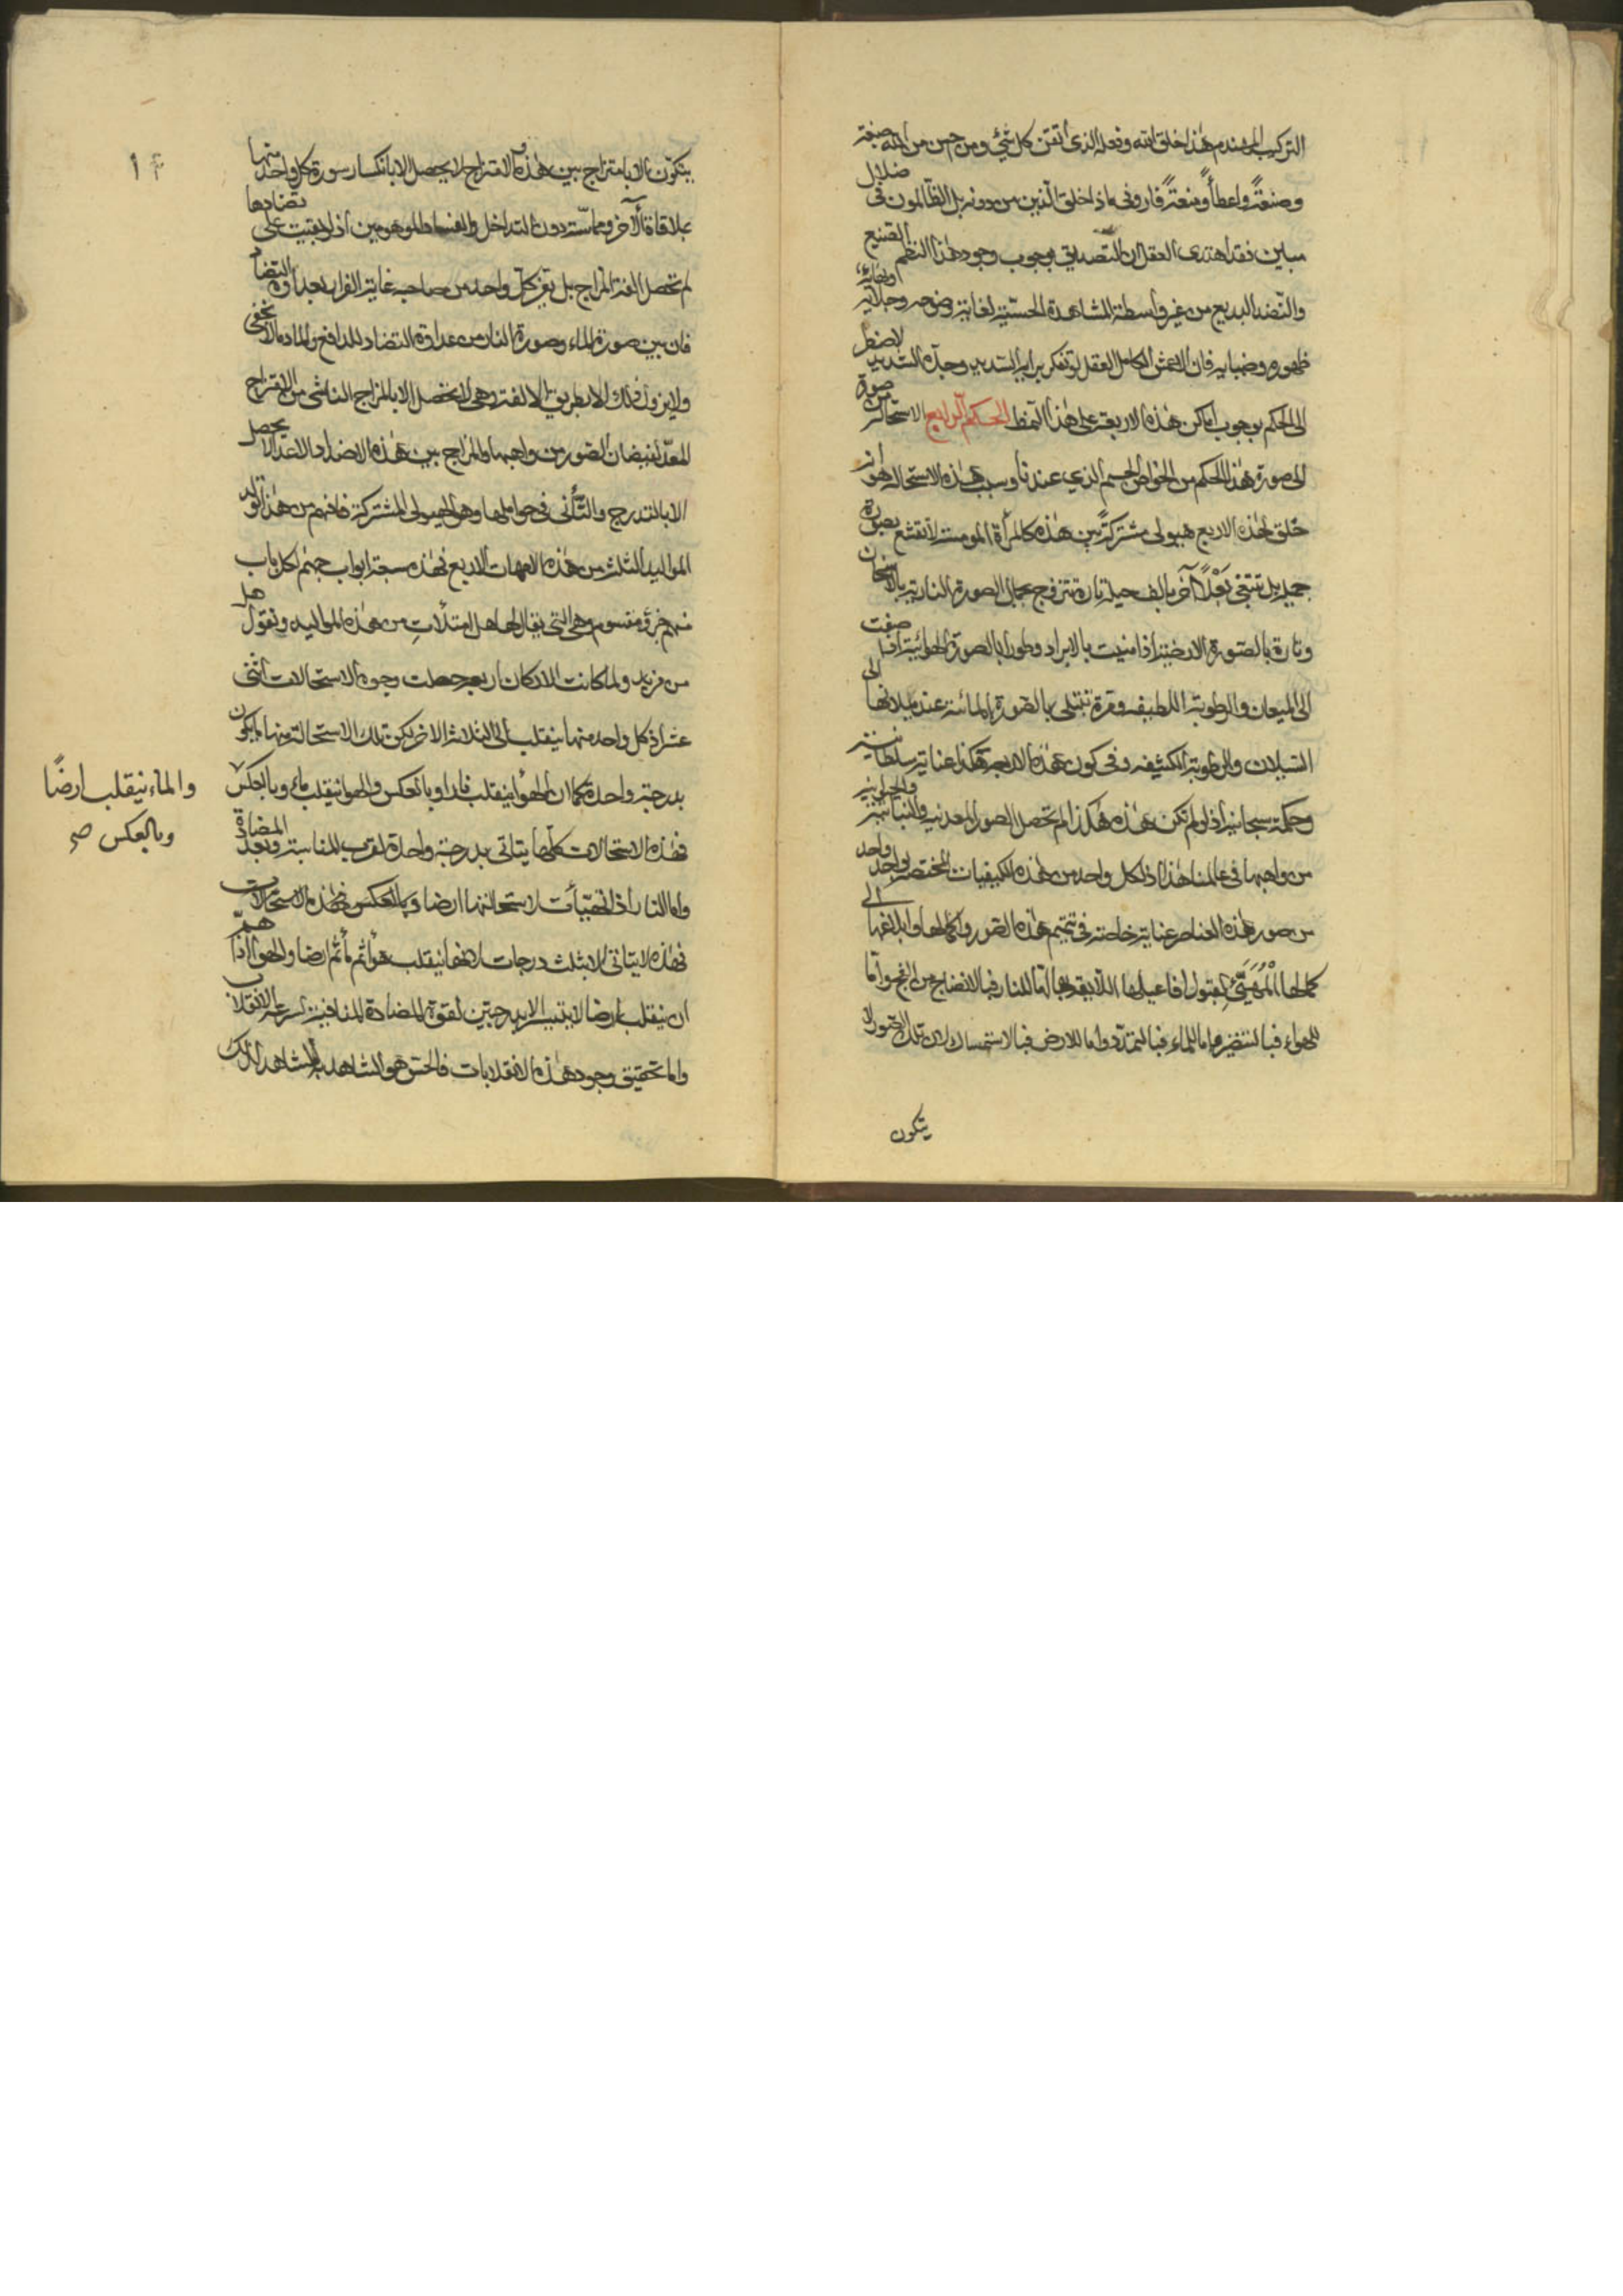 التركيب المهندم هذا خلق الله وفعله الذي اتقن كل شيء ومن احسن من الله صبغة
وصنعةً واعطأً ومنعةً فاروني ماذا خلق الذين من دونه بل الظالمون في ضلال
مبين فقد اهتدى العقل الى التصديق بوجوب وجود هذا النظم الصنيع
والنضد البديع من غير واسطة المشاهدة الحسية لغاية وضوحه وجلائه
ظهوره وضيائه فان الاعمش الكامل العقل لو تفكر برايه السديد وجده الشديد لاضطر
الى الحكم بوجوب اماكن هذه الاربعة على هذا النمط الحكم الرابع الاستحالة صورة
الى صورة هذا الحكم من الخواص الجسم الذي عندنا وسبب هذه الاستحالة هو انه
خلق لهذه الاربع هيولى مشتركةً بين هذه كالمرأة المومسة لا تقنع بصورة
جميل بل تبتغي بَعْلاً آخر بالف حيلة تارة تتزوج بجمال الصورة النارية بالاسخان
وتارة بالصورة الارضية اذا منيت بالابراد وطورا بالصورة الهوائية اذا صفت
الى الميعان والرطوبة اللطيفه ومرة تبتلى بالصورة المائية عند ميلانها الى
السيلان والرطوبة الكثيفه وفي كون هذه الاربعة هكذا عناية سلطانية
وحكمة سبحانية اذ لو لم تكن هذه هكذا لم تحصل الصور المعدنية والنباتية والحيوانية
من واهبها في عالمنا هذا اذ لكل واحد من هذه الكيفيات المختصة لواحد واحد
من صور هذه العناصر عناية خاصة في تتميم هذه الصور واكمالها وابلاغها الى
كمالها الْمُهَيَّئِ لقبول افاعيلها اللائقة بها اما للنار فبالانضاج من الفج واما
للهواء فبالتنضير واما للماء فبالتمدد واما للارض فبالاستمساك لان تلك الصور لا
يتكون
١٤
يتكون الا بامتزاج بين هذه والامتزاج لا يحصل الا بانكسار سورة كل واحد منها
بملاقاة الآخر ومماسته دون التداخل والفساد الموهومين اذ لو بقيت على تضادها
لم تحصل الفة المزاج بل يفر كل واحد من صاحبه غاية الفرار بعداوة التضاد
فان بين صورة الماء وصورة النار من عداوة التضاد للدافع والماده ما لا يخفى
ولا يزول ذلك الا بطريق الالفة وهي لا تحصل الا بالمزاج الناشي من الامتزاج
المعدّ لفيضان الصور من واهبها والمزاج بين هذه الاضداد الاعدا لا يحصل
الا بالتدريج والتأنى في حواملها وهو الهيولى المشتركة فافهم من هذا تولد
المواليد الثلث من هذه الامهات الاربع فهذه سبعة ابواب جهنم لكل باب
منهم جزؤ مقسوم وهي التي يقال لها هل امتلأتِ من هذه المواليد وتقول هل
من مزيد ولما كانت الاركان اربعه جعلت وجوه الاستحالات اثنى
عشر اذ كل واحد منها ينقلب الى الثلاثة الاخر لكن تلك الاستحالة منها ما يكون
بدرجة واحدة كما ان الهواء ينقلب نارا وبالعكس والهوا ينقلب ماء وبالعكس
والماء ينقلب ارضًا
وبالعكس صح
فهذه الاستحالات كلها يتاتى بدرجة واحدة لقرب المناسبة وبعد المضادة
واما النار اذا تهيأت لاستحالتها ارضا وبالعكس فهذه الاستحالات
فهذه لا يتاتى الا بثلث درجات لانها ينقلب هواً ثم مأ ثم ارضا والهوا اذا همّ
ان ينقلب ارضا لا يتيسر الا بدرجتين لقوة المضادة المنافية لسرعة الانقلاب
واما تحقيق وجود هذه الانقلابات فالحس هو الشاهد بالمشاهد لذلك